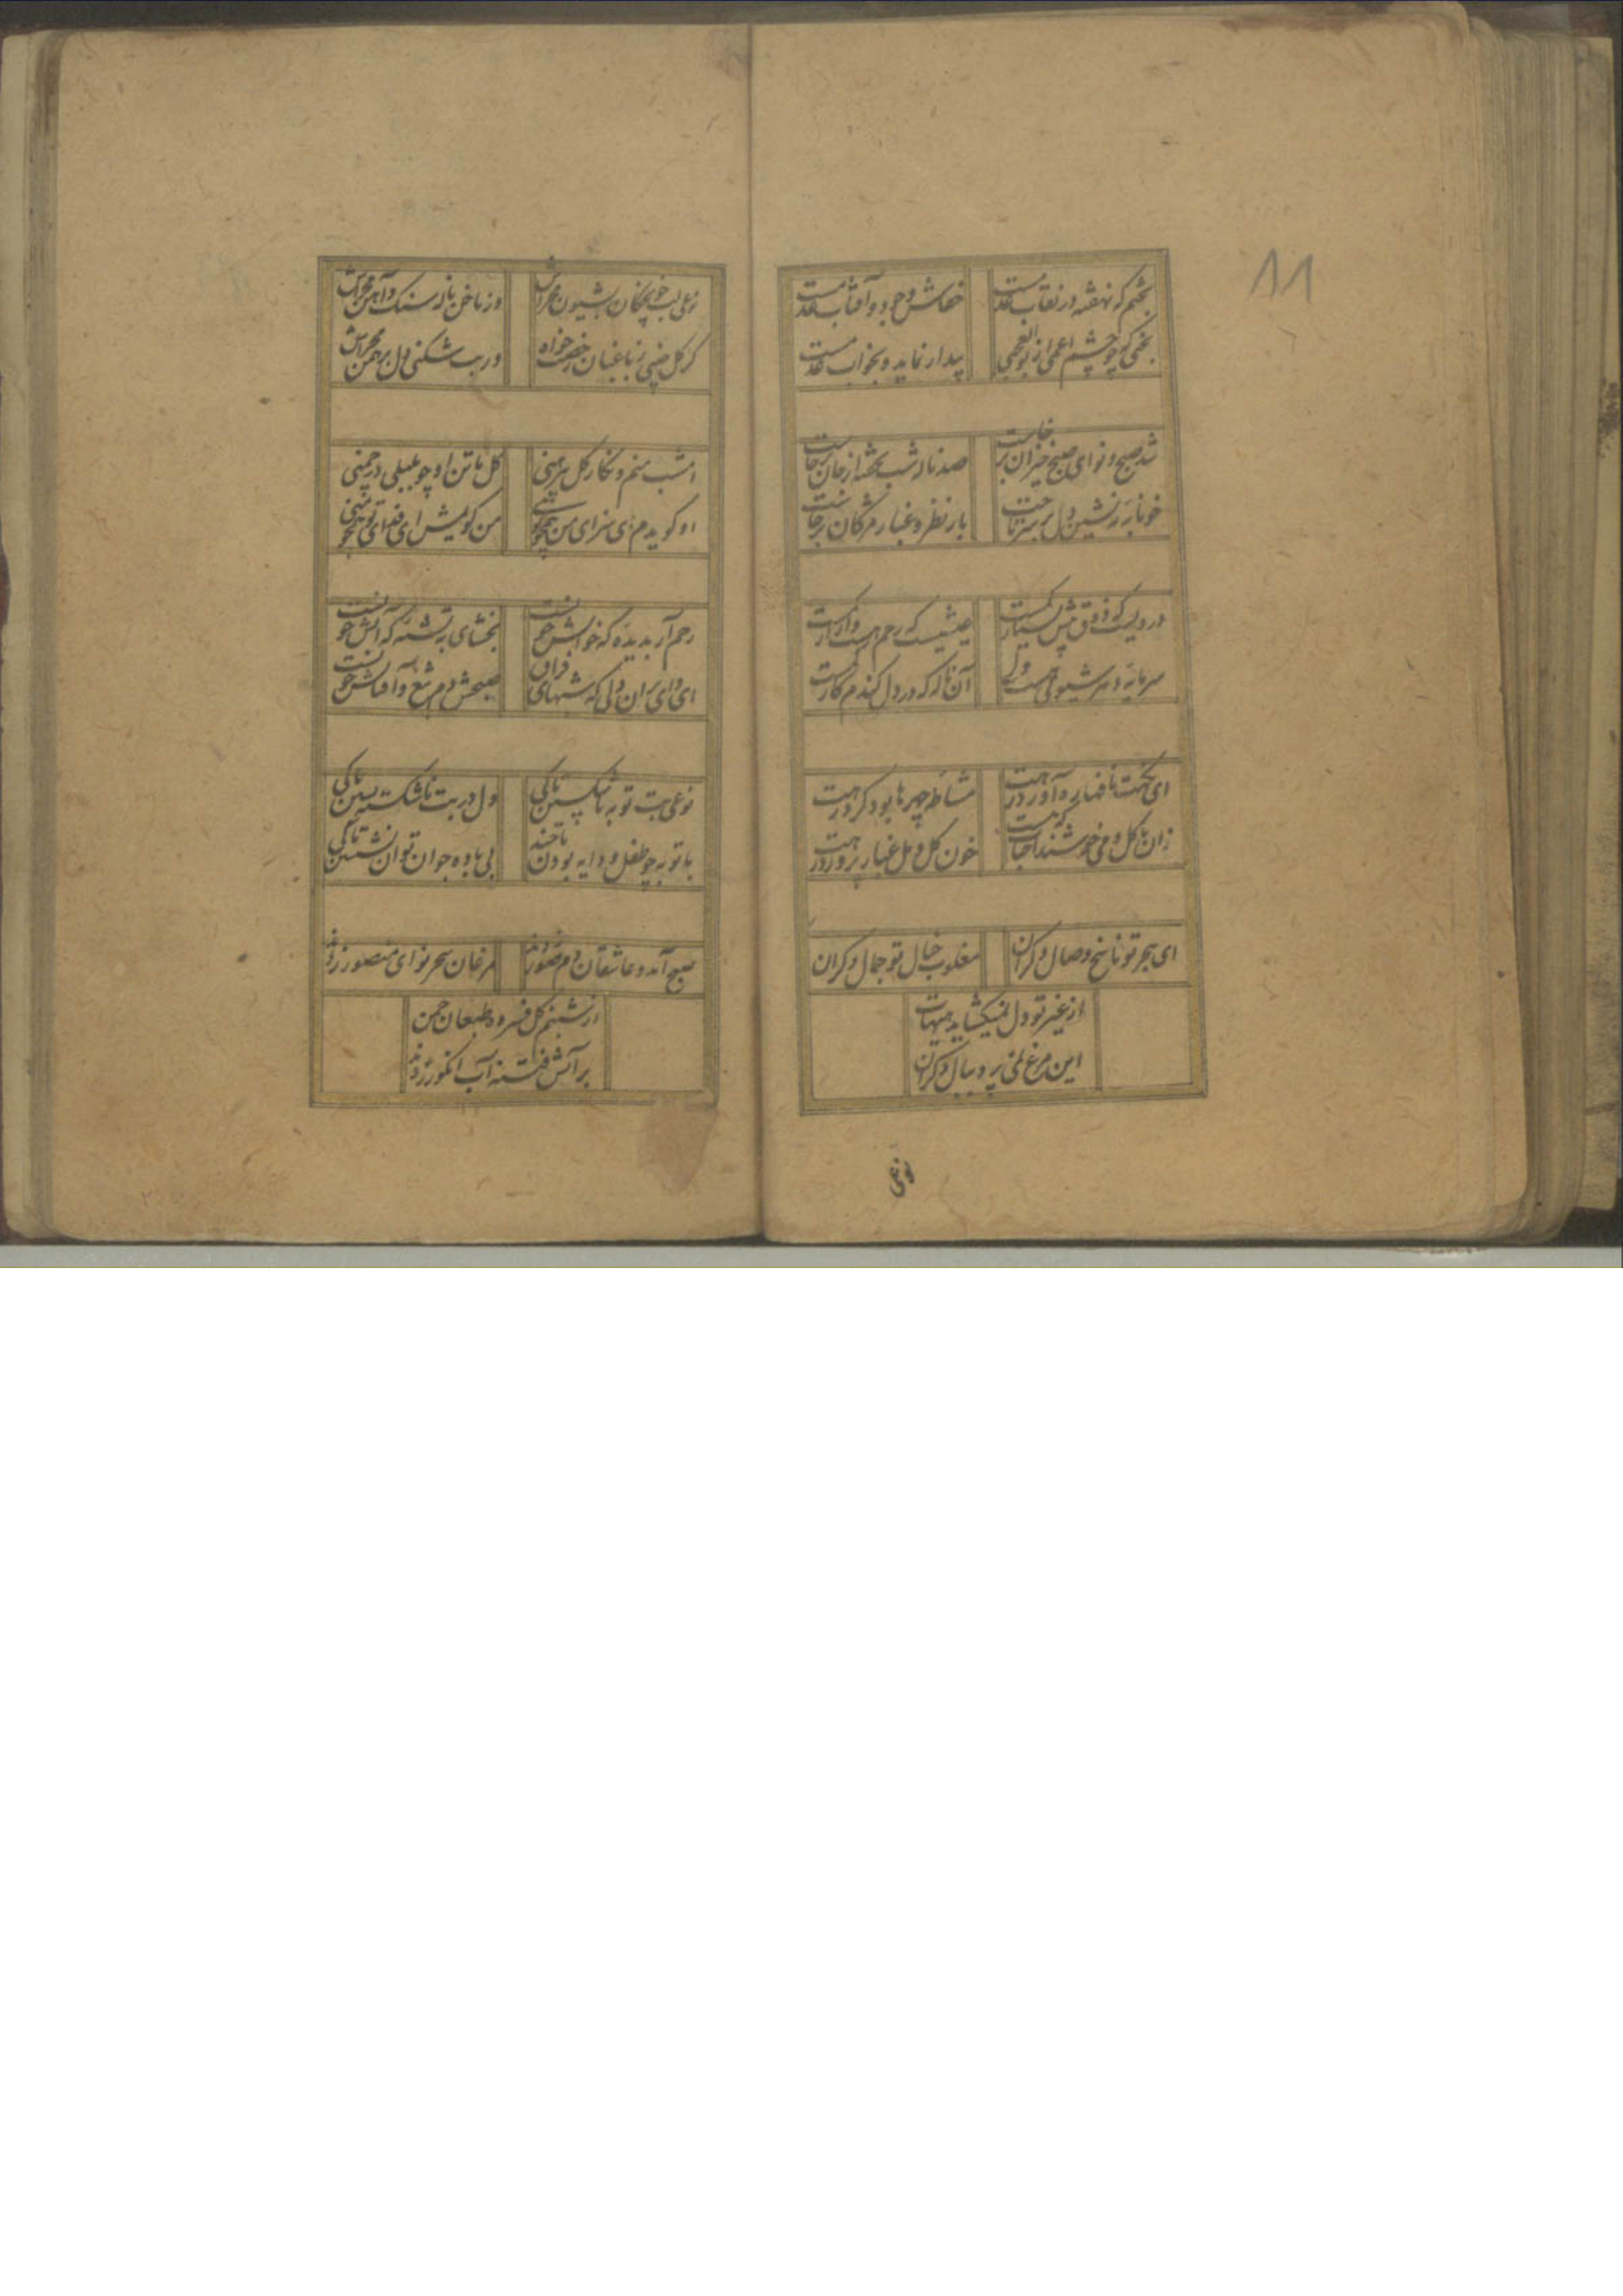 11
بختم که نهفته در نقاب عدمست
خفاش وجود و آفتاب عدمست
بختی که چو چشم اعمی از بوالعجبی
بیدار نماید و بخواب عدمست
شد صبح و نوای صبح خیزان برخاست
صد ناله شب نخفته از جان برخاست
خونابه ته نشین دل بر سر تاخت
بار نظر و غبار مژگان برخاست
دردیست که ذوق پیش بسیار کمست
عیشیست که رحم هست و آزار کمست
سرمایه و سر شیونی هست ولی
آن ناله که در دل کند کار کمست
ای نکهت نافها ره آورد رهت
مشاطه چهرها بود گرد رهت
زان با گل و می خوشند احباب که هست
خون گل و مل غبار پرورد رهت
ای هجر تو ناسخ وصال دگران
مغلوب خیال تو جمال دگران
از غیر تو دل نمیکشاید هیهات
این مرغ نمی پرد ببال دگران
نوعی
نوعی لب خونچکان بشیون مخراش
وز ناخن ناله سنک و آهن مخراش
گر گل چینی ز باغبان رخصت خواه
ور بت شکنی دل برهمن مخراش
امشب منم و نکار گل پیرهنی
گل با تن او چو بلبلی در چمنی
او گویدم ای سزای من همچو تویی
من گویمش ای فدای تو همچو منی
رحم آر بدیده که خوابش خونست
بخشای به تشنه که آبش خونست
ای وای بران دلی که شبهای فراق
صبحش دم تیغ و آفتابش خونست
نوعی بت توبه ناشکستن تا کی
دل در بت ناشکسته بستن تا کی
با توبه چو طفل و دایه بودن تا چند
بی باده جوان توان نشستن تا کی
صبح آمد و عاشقان دم صور زدند
مرغان سحر نوای منصور زدند
از شبنم گل فسرده طبعان چمن
بر آتش فتنه آب انگور زدند